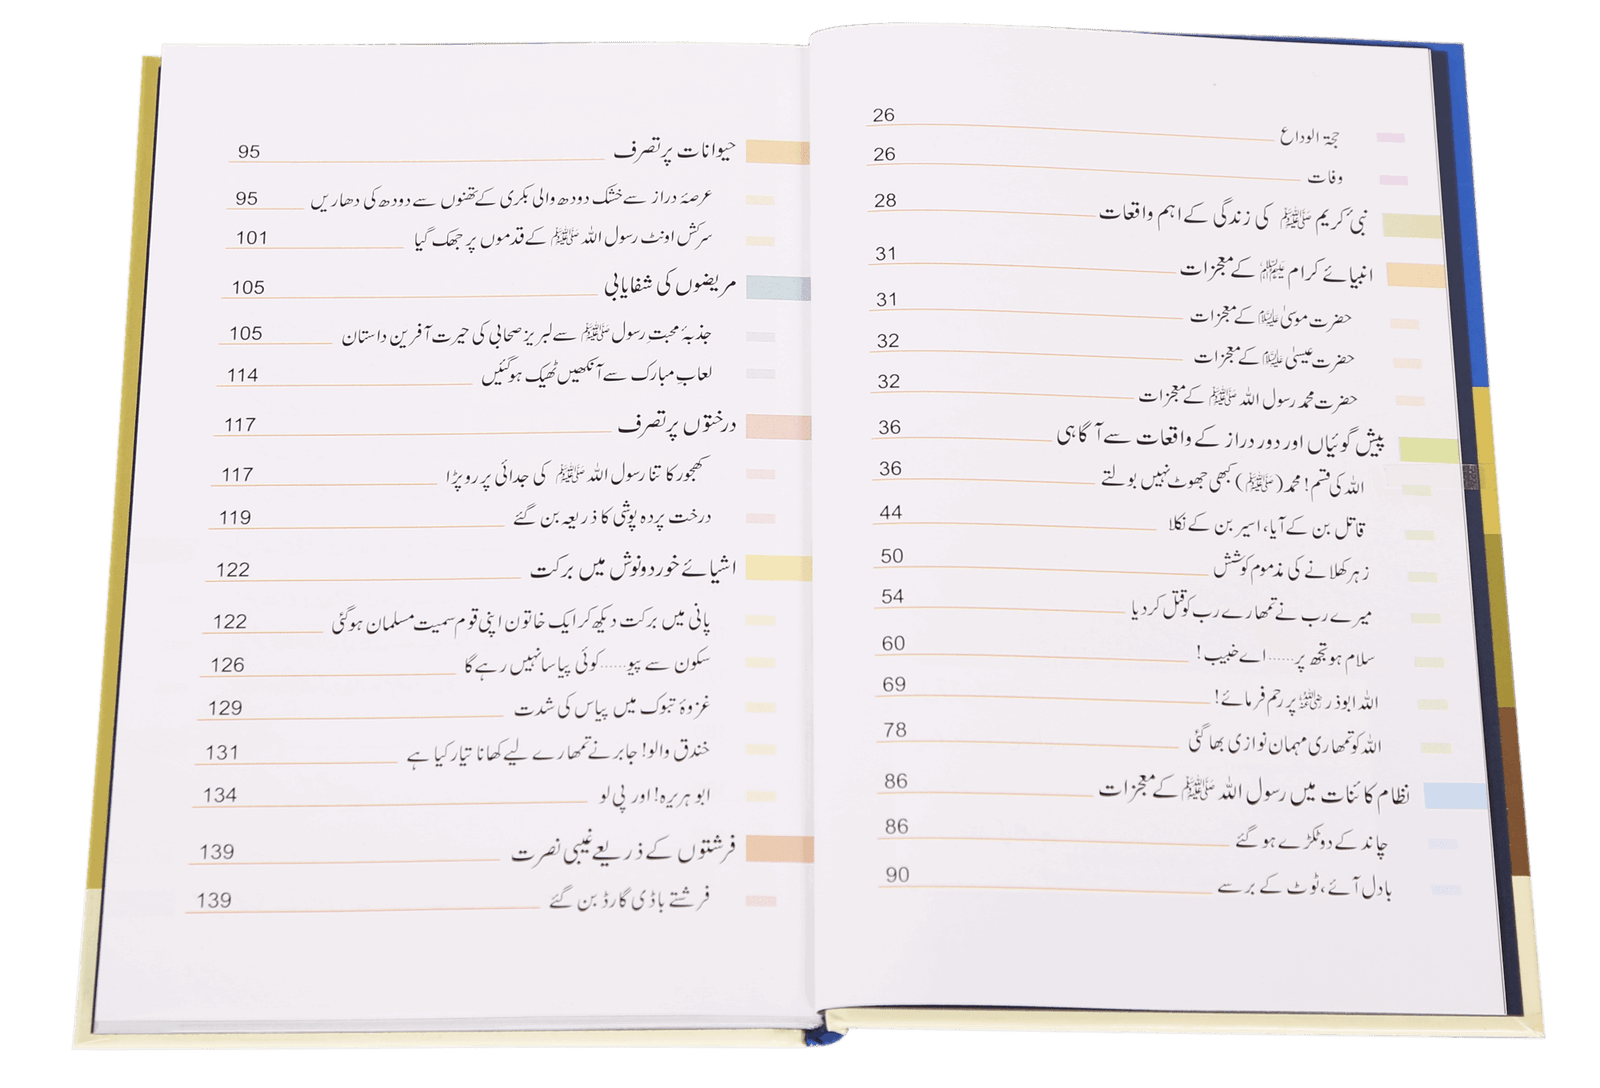 حجۃ الوداع 26
وفات 26
نبیٔ کریم ﷺ کی زندگی کے اہم واقعات 28
انبیائے کرام علیہم السلام کے معجزات 31
حضرت موسیٰ علیہ السلام کے معجزات 31
حضرت عیسیٰ علیہ السلام کے معجزات 32
حضرت محمد رسول اللہ ﷺ کے معجزات 32
پیش گوئیاں اور دور دراز کے واقعات سے آگاہی 36
اللہ کی قسم! محمد (ﷺ) کبھی جھوٹ نہیں بولتے 36
قاتل بن کے آیا، اسیر بن کے نکلا 44
زہر کھلانے کی مذموم کوشش 50
میرے رب نے تمھارے رب کو قتل کر دیا 54
سلام ہو تجھ پر...... اے خبیب! 60
اللہ ابوذر رضی اللہ عنہ پر رحم فرمائے! 69
اللہ کو تمھاری مہمان نوازی بھا گئی 78
نظام کائنات میں رسول اللہ ﷺ کے معجزات 86
چاند کے دو ٹکڑے ہو گئے 86
بادل آئے، ٹوٹ کے برسے 90
حیوانات پر تصرف 95
عرصۂ دراز سے خشک دودھ والی بکری کے تھنوں سے دودھ کی دھاریں 95
سرکش اونٹ رسول اللہ ﷺ کے قدموں پر جھک گیا 101
مریضوں کی شفایابی 105
جذبۂ محبت رسول ﷺ سے لبریز صحابی کی حیرت آفرین داستان 105
لعاب مبارک سے آنکھیں ٹھیک ہو گئیں 114
درختوں پر تصرف 117
کھجور کا تنا رسول اللہ ﷺ کی جدائی پر رو پڑا 117
درخت پردہ پوشی کا ذریعہ بن گئے 119
اشیائے خورد و نوش میں برکت 122
پانی میں برکت دیکھ کر ایک خاتون اپنی قوم سمیت مسلمان ہو گئی 122
سکون سے پیو...... کوئی پیاسا نہیں رہے گا 126
غزوۂ تبوک میں پیاس کی شدت 129
خندق والو! جابر نے تمھارے لیے کھانا تیار کیا ہے 131
ابو ہریرہ! اور پی لو 134
فرشتوں کے ذریعے غیبی نصرت 139
فرشتے باڈی گارڈ بن گئے 139